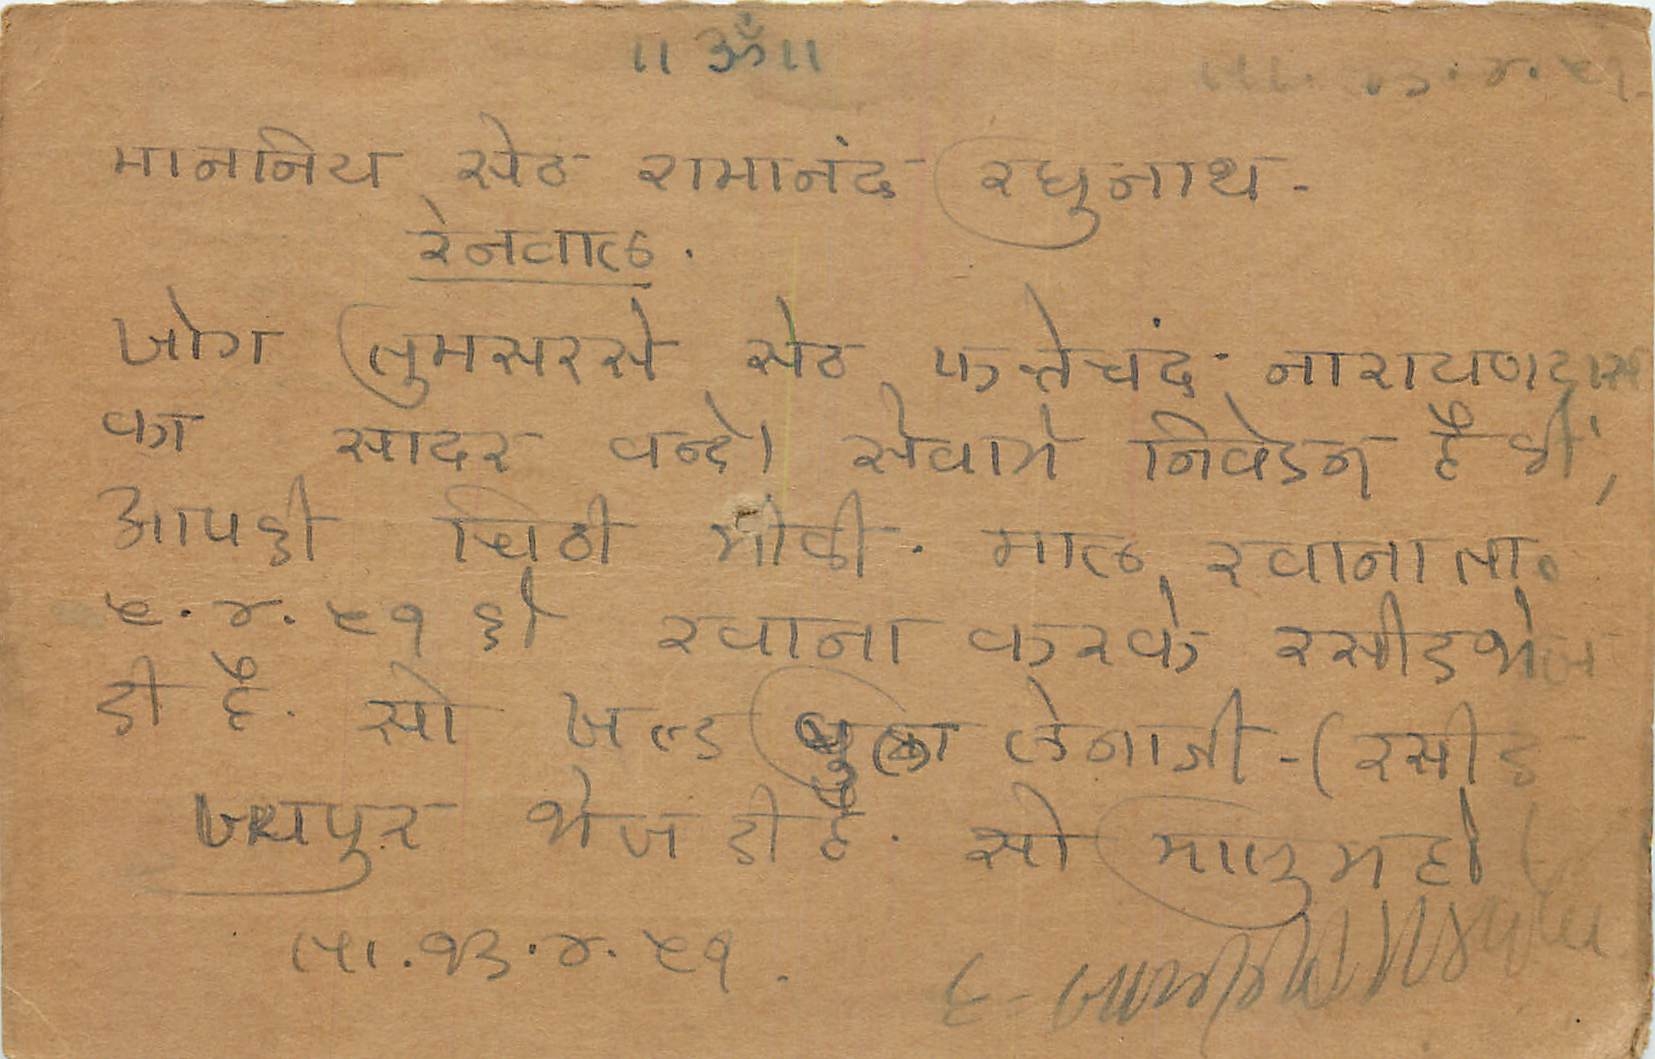 ।। ॐ ।।
ता. १३.४.५१
माननिय सेठ रामानंद रघुनाथ -
रेनवाल .
जोग तुमसरसे सेठ फत्तेचंद नारायणदास
का सादर वन्दे। सेवामे निवेदन है की,
आपकी चिठी मीली . माल रवाना ता॰
५.४.५१ को रवाना करके रसीद भेज
दी है . सो जल्द छुडा लेनाजी - (रसीद
जयपुर भेज दी है . सो मालुम हो
ता. १३.४.५१ .